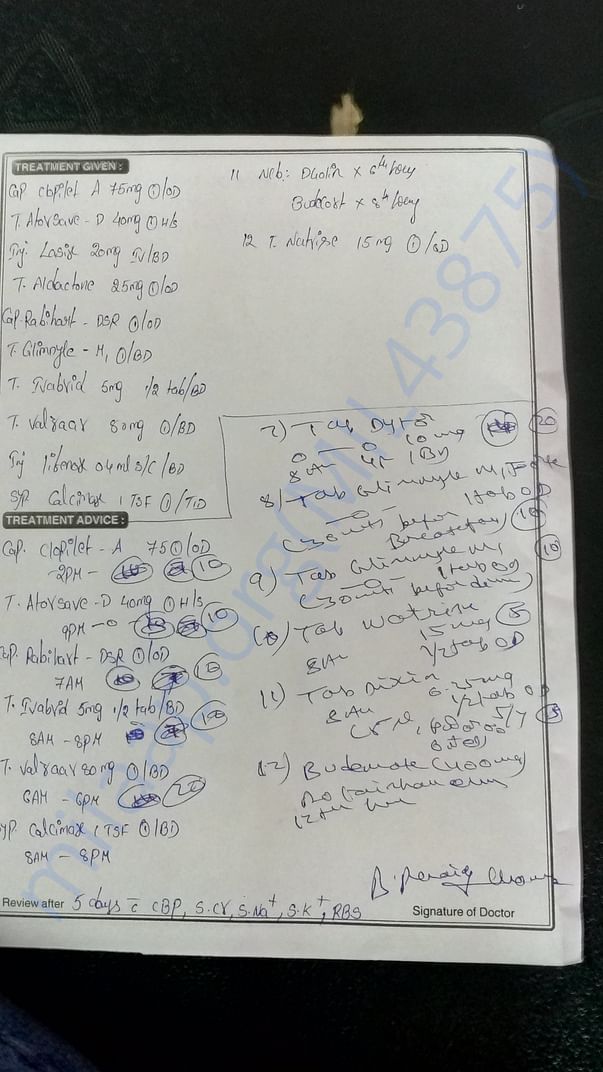 TREATMENT GIVEN :
Cap clopilet A 75mg ①/OD
T. Atorsave - D 40mg ① H/s
Inj Lasix 20mg IV/BD
T. Aldactone 25mg ①/OD
Cap. Rabihart - DSR ①/OD
T. Glimnyle - M1 ①/BD
T. Ivabrid 5mg 1/2 tab/BD
T. Valzaar 80mg ①/BD
Inj 0.4ml S/C /BD
Syp Calcimax 1 TSF ①/TID
11 Neb: Duolin x 6th hrly
Budecort x 8th hrly
12 T. Natrise 15mg ①/OD
TREATMENT ADVICE :
Cap. Clopilet - A 75 ①/OD
2PM - 10
T. Atorsave - D 40mg ① H/s
9PM - 10
Cap. Rabihart - DSR ①/OD
7AM 10
T. Ivabrid 5mg 1/2 tab/BD
8AM - 8PM 10
T. Valzaar 80mg ①/BD
6AM - 6PM 20
Syp. Calcimax 1 TSF ①/BD
8AM - 8PM
7) Tab Dytor 20
10mg
8AM 4P 1BD
8) Tab Glimnyle M1 Forte
1tab OD
(30 mits before Breakfast) 10
9) Tab Glimnyle M1 10
1tab OD
(30 mits before dinner)
10) Tab Natrise 5
15mg
8AM 1/2 tab OD
11) Tab Dixin 0.25mg
8AM 1/2 tab OD
5/7 5
12) Budemate (400mg)
Rotacaps
Review after 5 days c̄ CBP, S.Cr, S.Na⁺, S.K⁺, RBS
Signature of Doctor